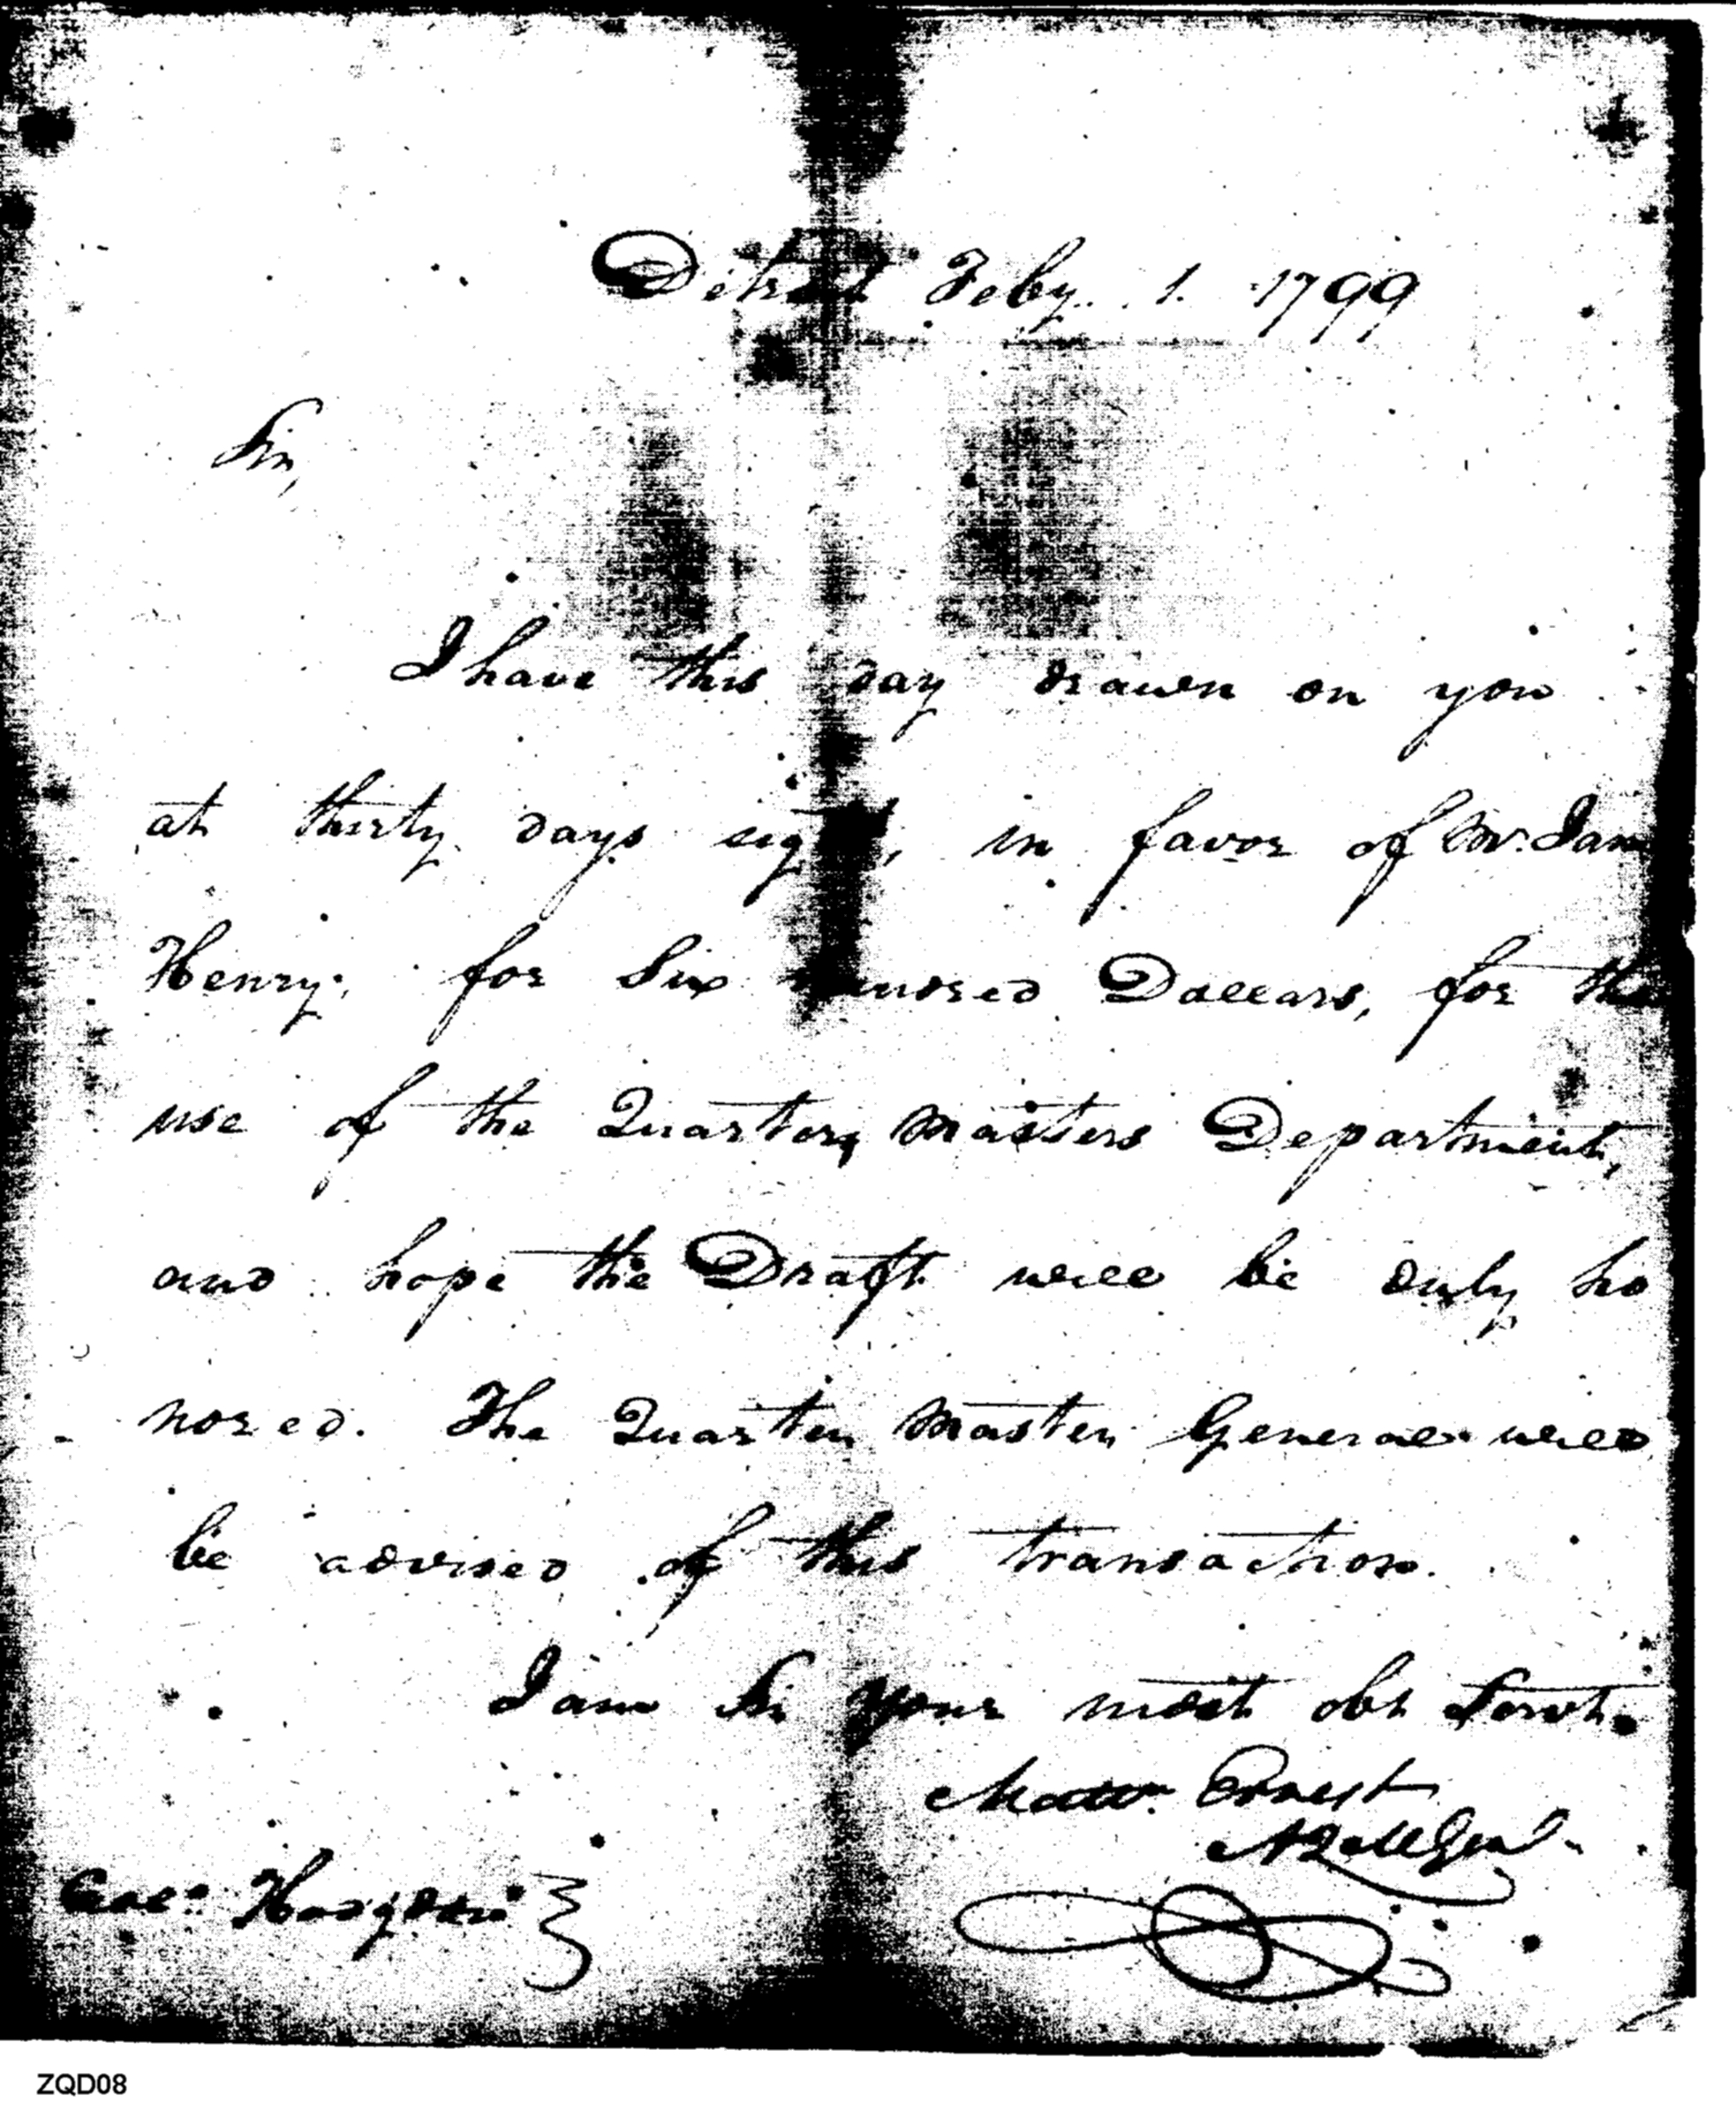 Detroit Feby. 1. 1799
Sir,
I have this day drawn on you
at thirty days sight, in favor of Mr. Jam
Henry, for Six hundred Dollars, for the
use of the Quarter Masters Department,
and hope the Draft will be duly ho
nored. The Quarter Master General will
be advised of this transaction.
I am Sir your most obt Servt.
Mattw. Ernest
AQMGenl.
Coll. Hodgdon
ZQD08